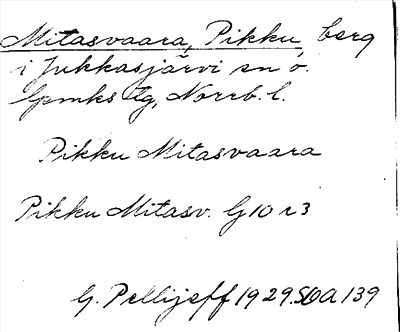 Mitasvaara, Pikku, berg
i Jukkasjärvi sn o.
lpmks tg, Norrb. l.
Pikku Mitasvaara
Pikku Mitasv. G10 r3
G. Pellijeff 1929. SOA 139